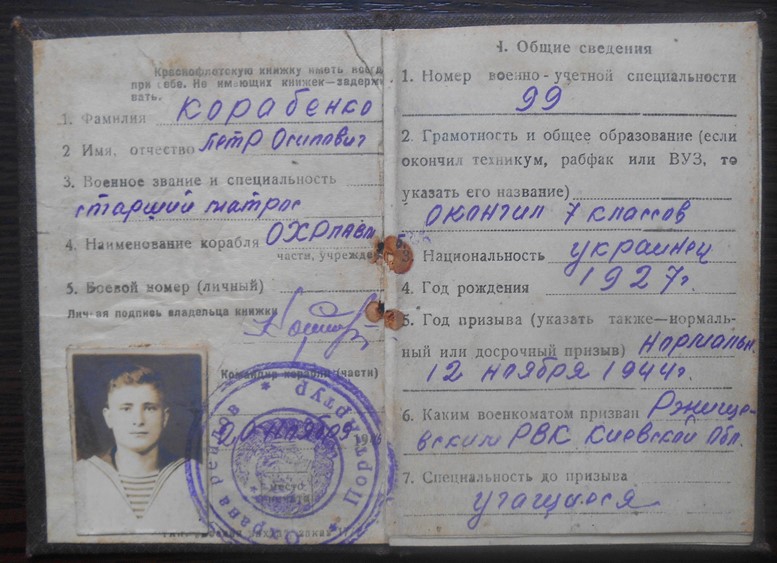 Краснофлотскую книжку иметь всегд
при себе. Не имеющих книжек—задерж
вать.
1. Фамилия Корабенко
2 Имя, отчество Петр Осипович
3. Военное звание и специальность
старший матрос
4. Наименование корабля
части, учрежде
5. Боевой номер (личный)
Личная подпись владельца книжки
Командир корабля (части)
20 ноября 19
Место
печати
Охрана рейдов Порт-Артур
1. Общие сведения
1. Номер военно-учетной специальности
99
2. Грамотность и общее образование (если
окончил техникум, рабфак или ВУЗ, то
указать его название)
окончил 7 классов
3. Национальность украинец
4. Год рождения 1927г.
5. Год призыва (указать также—нормаль-
ный или досрочный призыв) нормальн.
12 ноября 1944г.
6. Каким военкоматом призван Ржище-
вским РВК Киевской Обл.
7. Специальность до призыва
учащийся